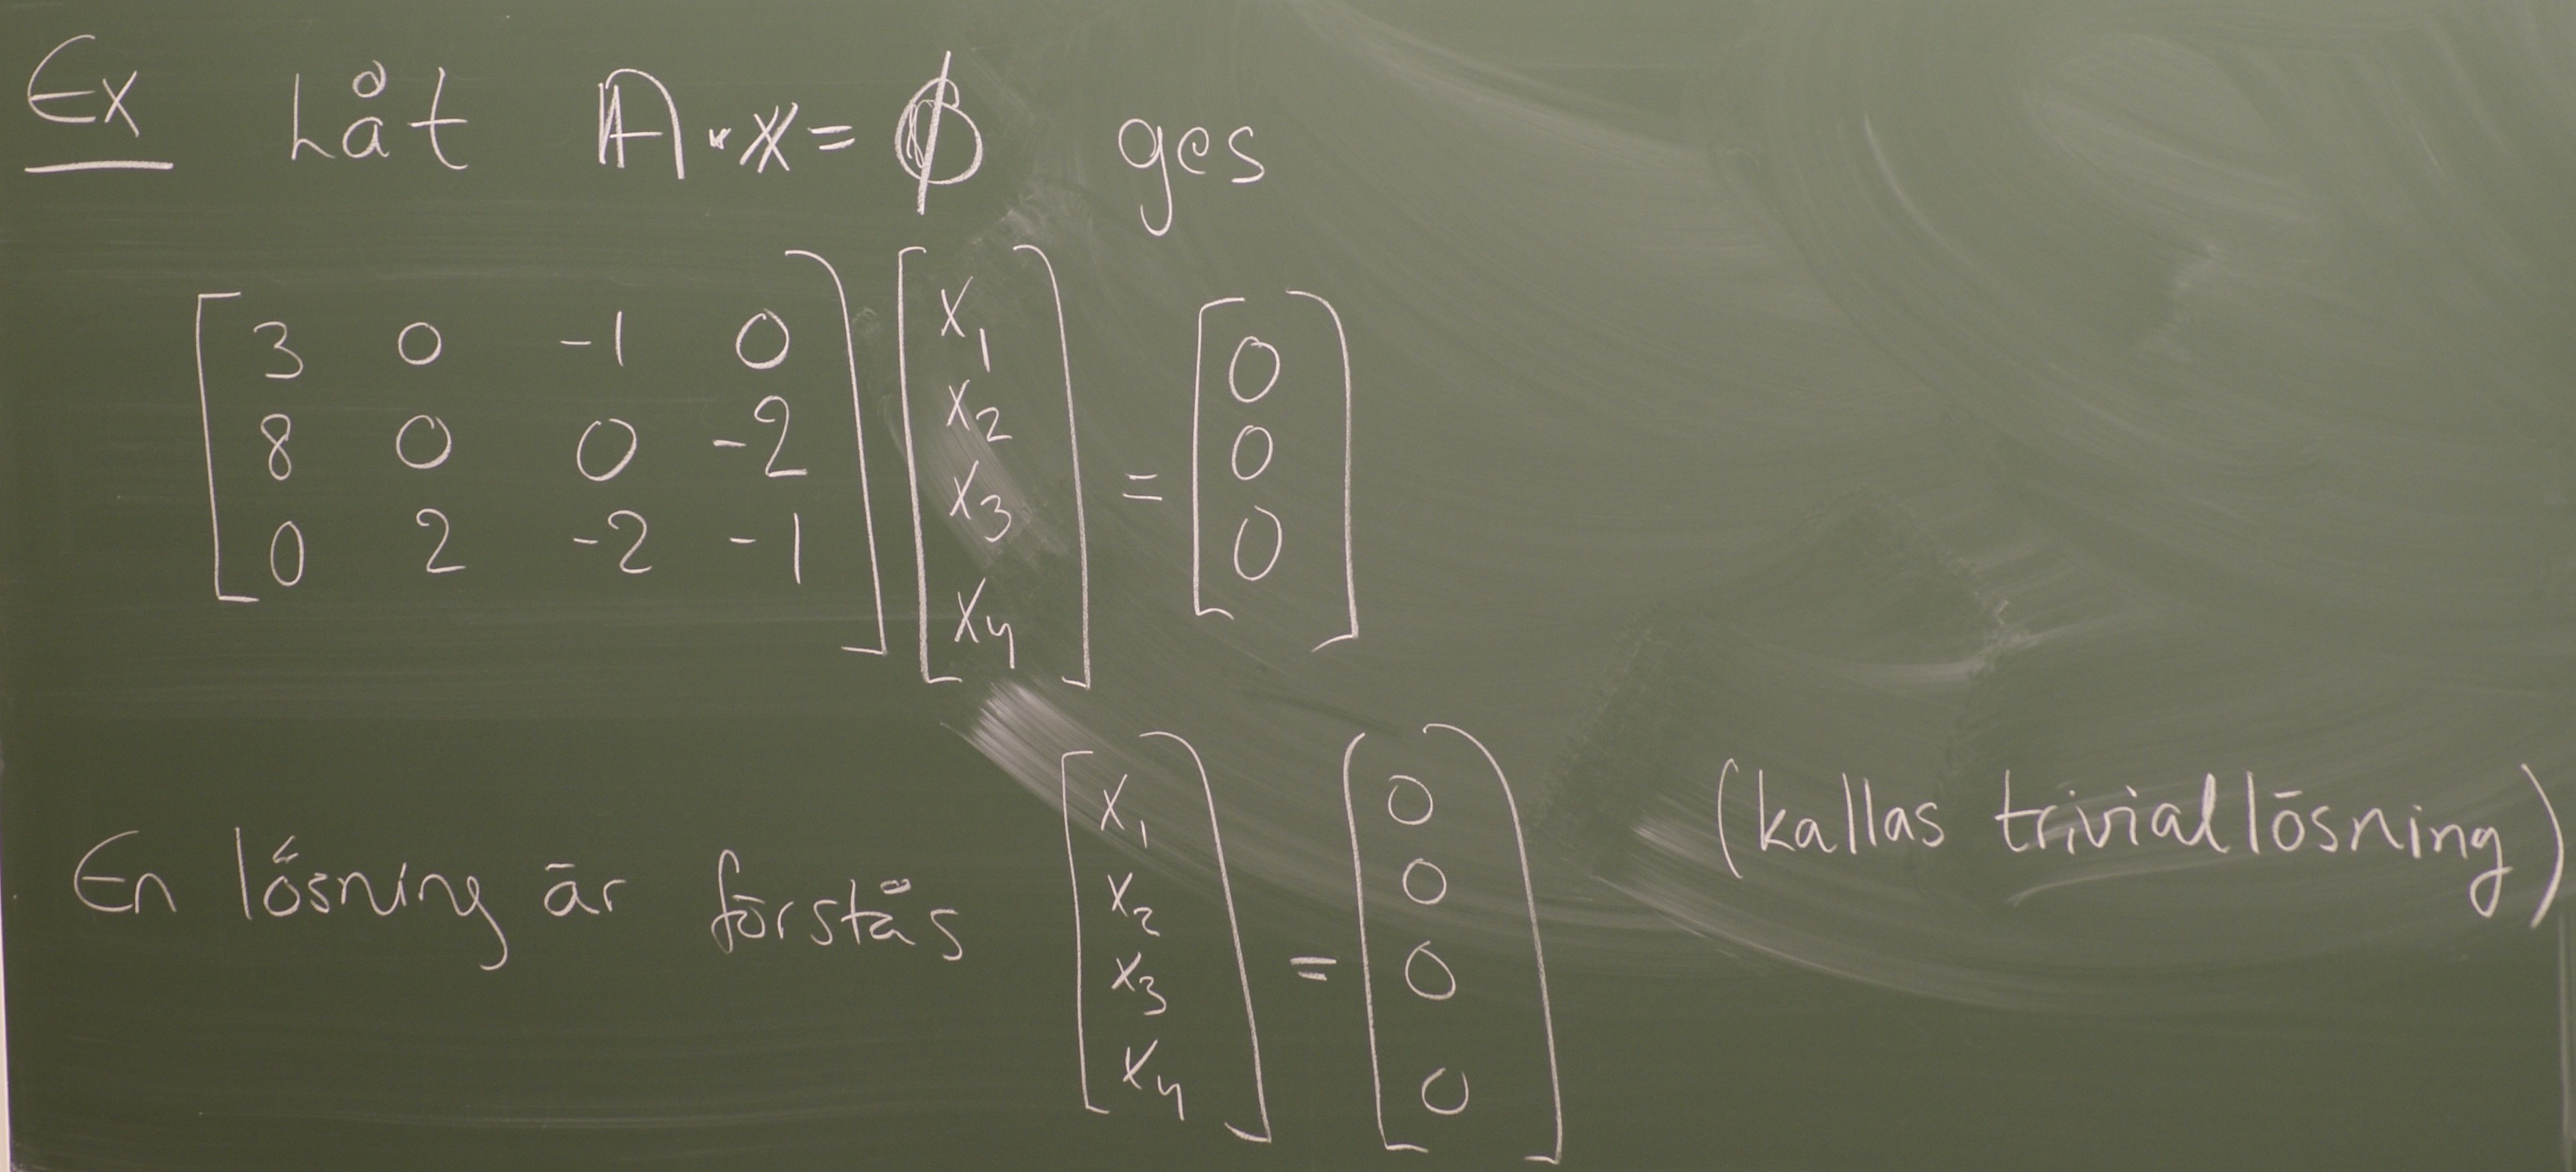 Ex Låt A·x = 0 ges
[3 0 -1 0] [x₁] [0]
[8 0 0 -2] [x₂] = [0]
[0 2 -2 -1] [x₃] [0]
[x₄]
En lösning är förstås [x₁ x₂ x₃ x₄] = [0 0 0 0] (kallas triviallösning)